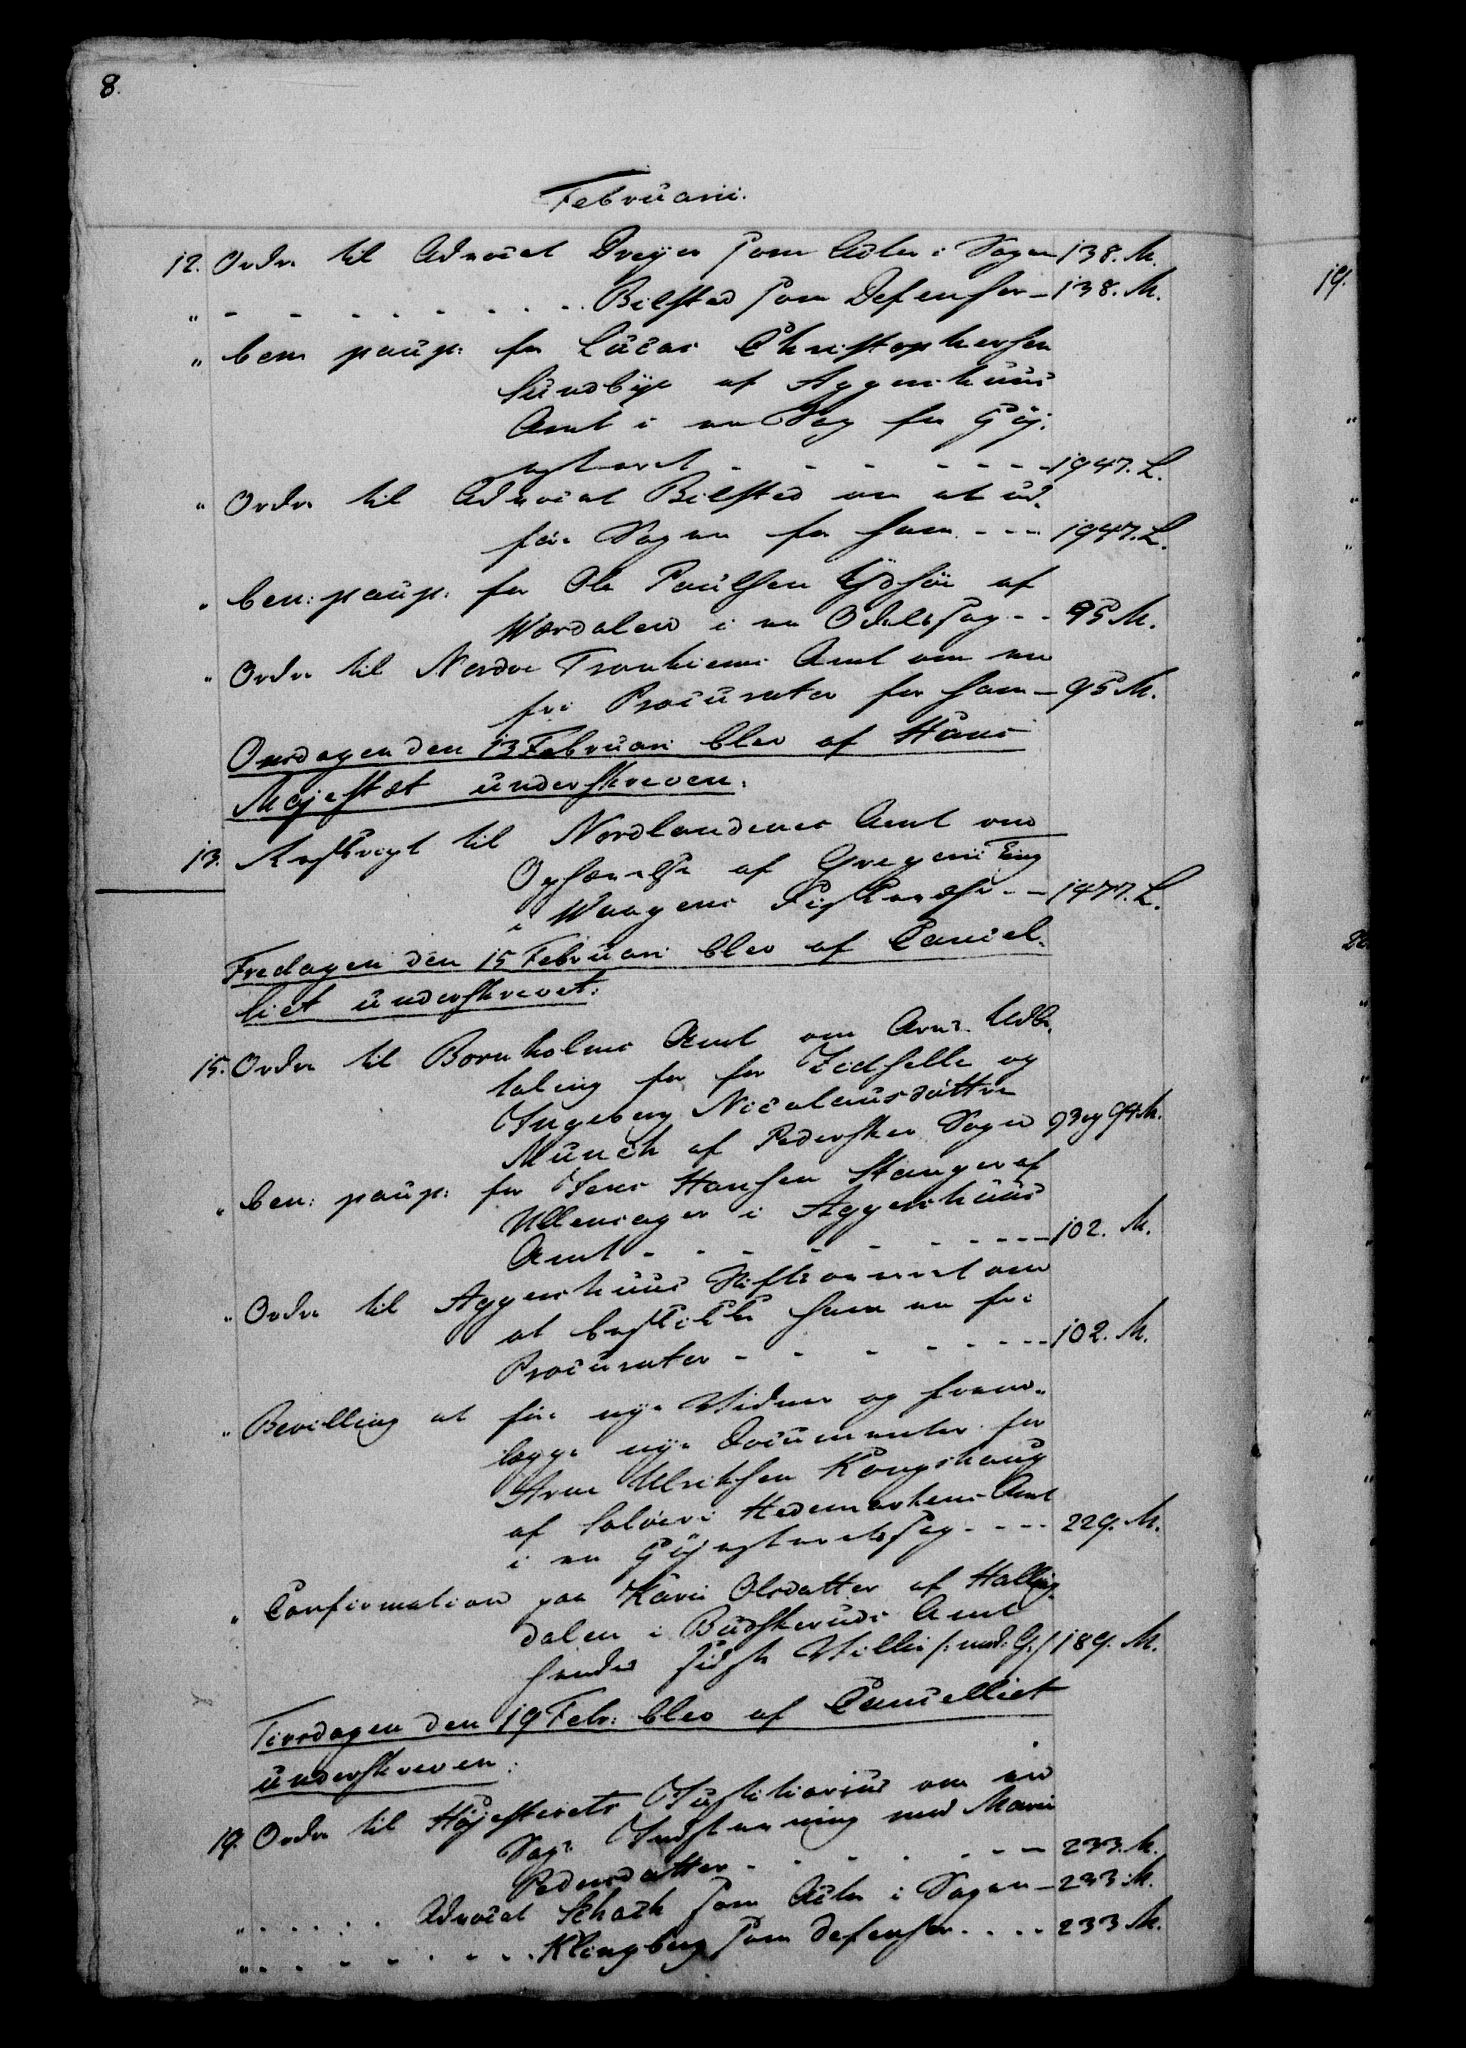 8.
Februarii.
12. Ordre til Advocat Dreyer som Actor i Sagen 138. M.
" - - - - - - - Bilsted som Defensor - 138. M.
" ben: paup: for Lucas Christophersen
Sundbye af Aggershuus
Amt i en Sag for Høj-
esteret - - - - - - 1947. L.
" Ordre til Advocat Bilsted om at ud-
føre Sagen for ham - - - 1947. L.
" ben: paup: for Ole Paulsen Ydsøe af
Wærdalen i en Odelssag - - 95 M.
" Ordre til Nordre Tronhiems Amt om en
fri Procurator for ham - 95 M.
Onsdagen den 13 Februari blev af Hans
Majestæt underskreven.
13. Rescript til Nordlandenes Amt om
Ophævelse af
i Waagens - - 1477. L.
Fredagen den 15 Februari blev af Cancel-
liet underskrevet:
15. Ordre til Bornholms Amt om Arve Udbe-
taling for for Zidselle og
Ingeborg Nicolausdatter
Munch af Pedersker Sogn 93 og 94 M.
" ben: paup: for Jens Hansen Stanger af
Ullensager i Aggershuus
Amt - - - - - - - 102. M.
" Ordre til Aggershuus Stiftsamt om
at beskikke ham en fri
Procurator - - - - - - 102. M.
" Bevilling at føre nye Vidner og frem-
lægge nye Documenter for
Arne Ulriksen Kongshaug
af Soløer i Hedemarkens Amt
i en Højesteretssag - - - - 229. M.
" Confirmation paa Kari Olsdatter af Halling-
dalen i Budskeruds Amt
hendes sidste Villie /: med: G:/ 189. M.
Tirsdagen den 19 Febr: blev af Cancelliet
underskreven:
19. Ordre til Højesterets Justitiarius om en
Sags Indstevning med Maren
Pedersdatter - - - - - - 233. M.
" - - - - - Advocat Schack som Actor i Sagen - 233. M.
" - - - - - - - Klingberg som Defensor - - - - 233 M.
19.